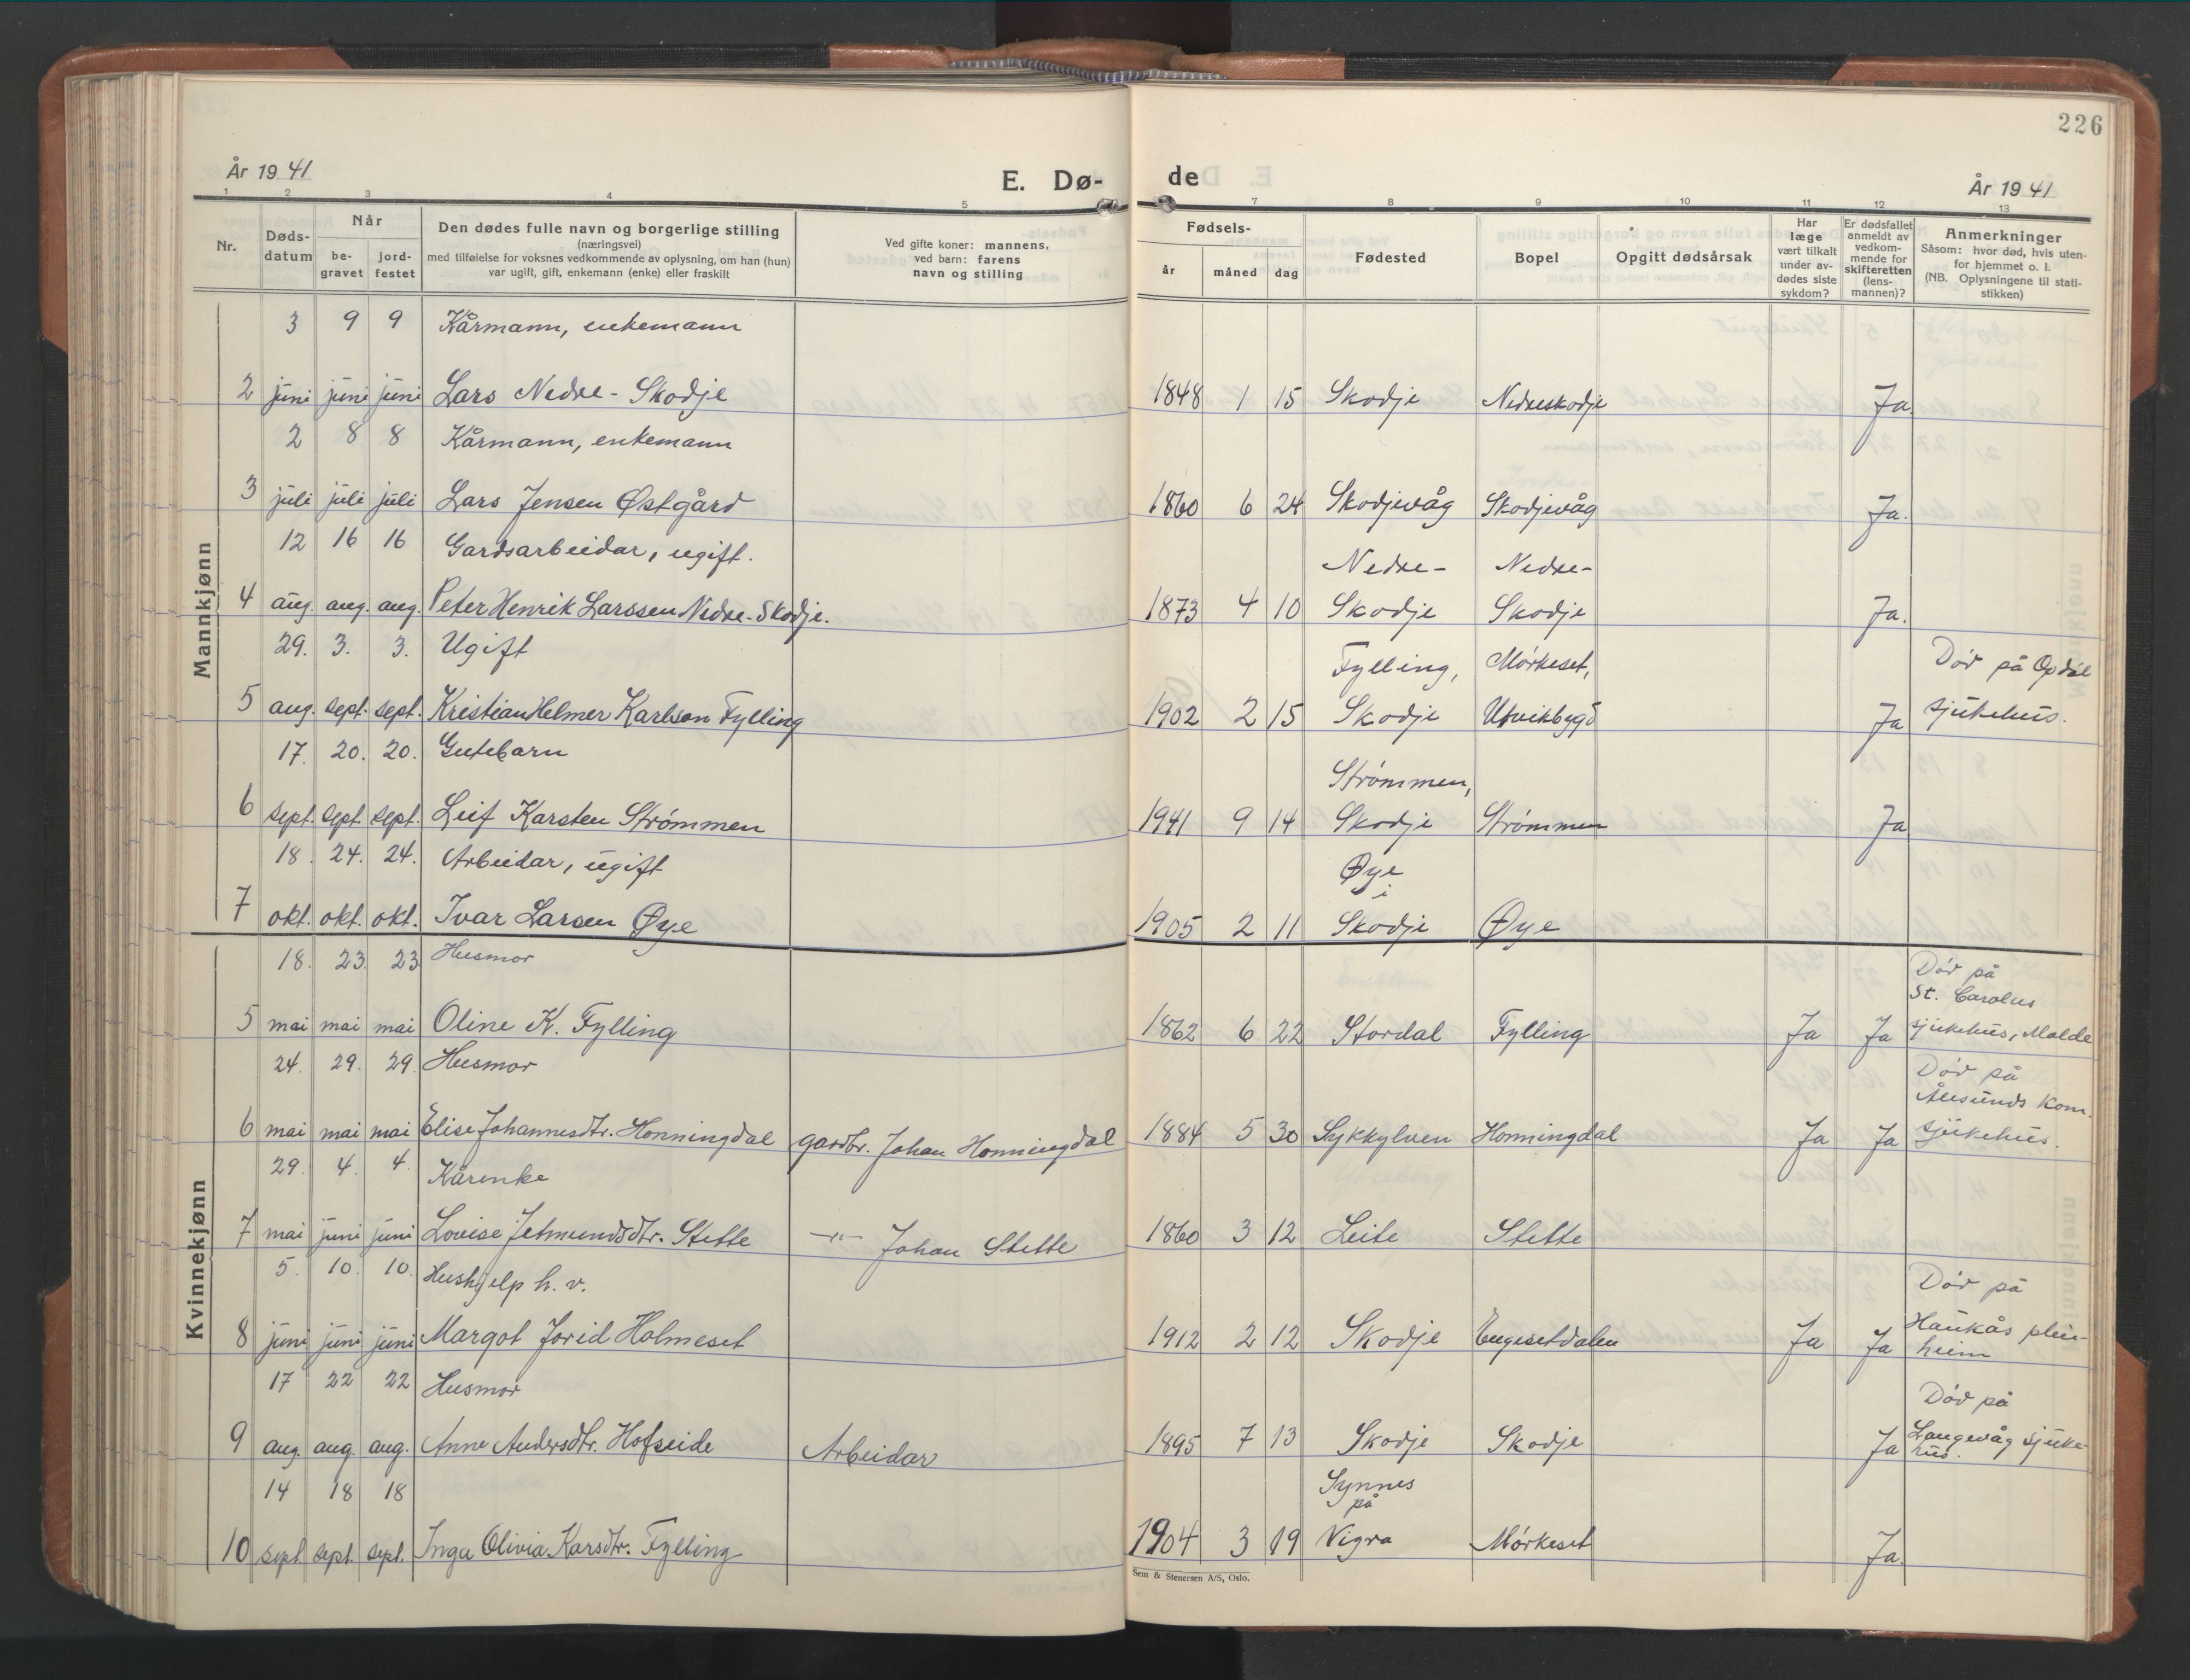 226
År 1941
E. Dø-
de
År 1941
1 2 3 4 5 7 8 9 10 11 12 13
Nr.
Døds-
datum
Når
be-
gravet
jord-
festet
Den dødes fulle navn og borgerlige stilling
(næringsvei)
med tilføielse for voksnes vedkommende av oplysning, om han (hun)
var ugift, gift, enkemann (enke) eller fraskilt
Ved gifte koner: mannens,
ved barn: farens
navn og stilling
Fødsels-
år måned dag
Fødested
Bopel
Opgitt dødsårsak
Har
læge
vært tilkalt
under av-
dødes siste
sykdom?
Er dødsfallet
anmeldt av
vedkom-
mende for
skifteretten
(lens-
mannen)?
Anmerkninger
Såsom: hvor død, hvis uten-
for hjemmet o. l.
(NB. Oplysningene til stati-
stikken)
Mannkjønn
3 9 9 Kårmann, enkemann
2 juni juni juni Lars Nedre-Skodje 1848 1 15 Skodje Nedreskodje Ja
2 8 8 Kårmann, enkemann
3 juli juli juli Lars Jensen Østgård 1860 6 24 Skodjevåg Skodjevåg Ja.
12 16 16 Gardsarbeidar, ugift. Nedre- Nedre-
4 aug. aug. aug. Peter Henrik Larssen Nedre-Skodje. 1873 4 10 Skodje Skodje Ja.
29. 3. 3. Ugift Fylling, Mørkeset, Död på Opdøl
5 aug. sept. sept. Kristian Helmer Karlson Fylling 1902 2 15 Skodje Utvikbygd Ja sjukehus.
17. 20. 20. Gutebarn Strømmen,
6 sept. sept. sept. Leif Karsten Strømmen 1941 9 14 Skodje Strømmen Ja
18. 24. 24. Arbeidar, ugift Øye
i
7 okt. okt. okt. Ivar Larsen Øye 1905 2 11 Skodje Øye
Kvinnekjønn
18. 23. 23 Husmor Död på
St. Carolus
5 mai mai mai Oline K. Fylling 1862 6 22 Stordal Fylling Ja Ja sjukehus, Molde
24. 29. 29. Husmor Död på
Ålesunds Kom.
6 mai mai mai Elise Johannesdtr. Honningdal gardbr. Johan Honningdal 1884 5 30 Sykkylven Honningdal Ja Ja sjukehus.
29. 4. 4. Kårenke
7 mai juni juni Lovise Jetmundsdtr. Stette -"- Johan Stette 1860 3 12 Leite Stette
5. 10. 10. Hushjelp h. v. Död på
8 juni juni juni Margot Jorid Holmeset 1912 2 12 Skodje Engesetdalen Ja Ja Haukås plei-
heim
17 22 22 Husmor Död på
9 aug. aug. aug. Anne Andersdtr. Hofseide Arbeidar 1895 7 13 Skodje Skodje Ja Langevåg sjuke-
hus.
14 18 18 Synnes
på
10 sept. sept. sept. Inga Olivia Karsdtr. Fylling 1904 3 19 Vigra Mørkeset Ja.
Sem & Stenersen A/S, Oslo.